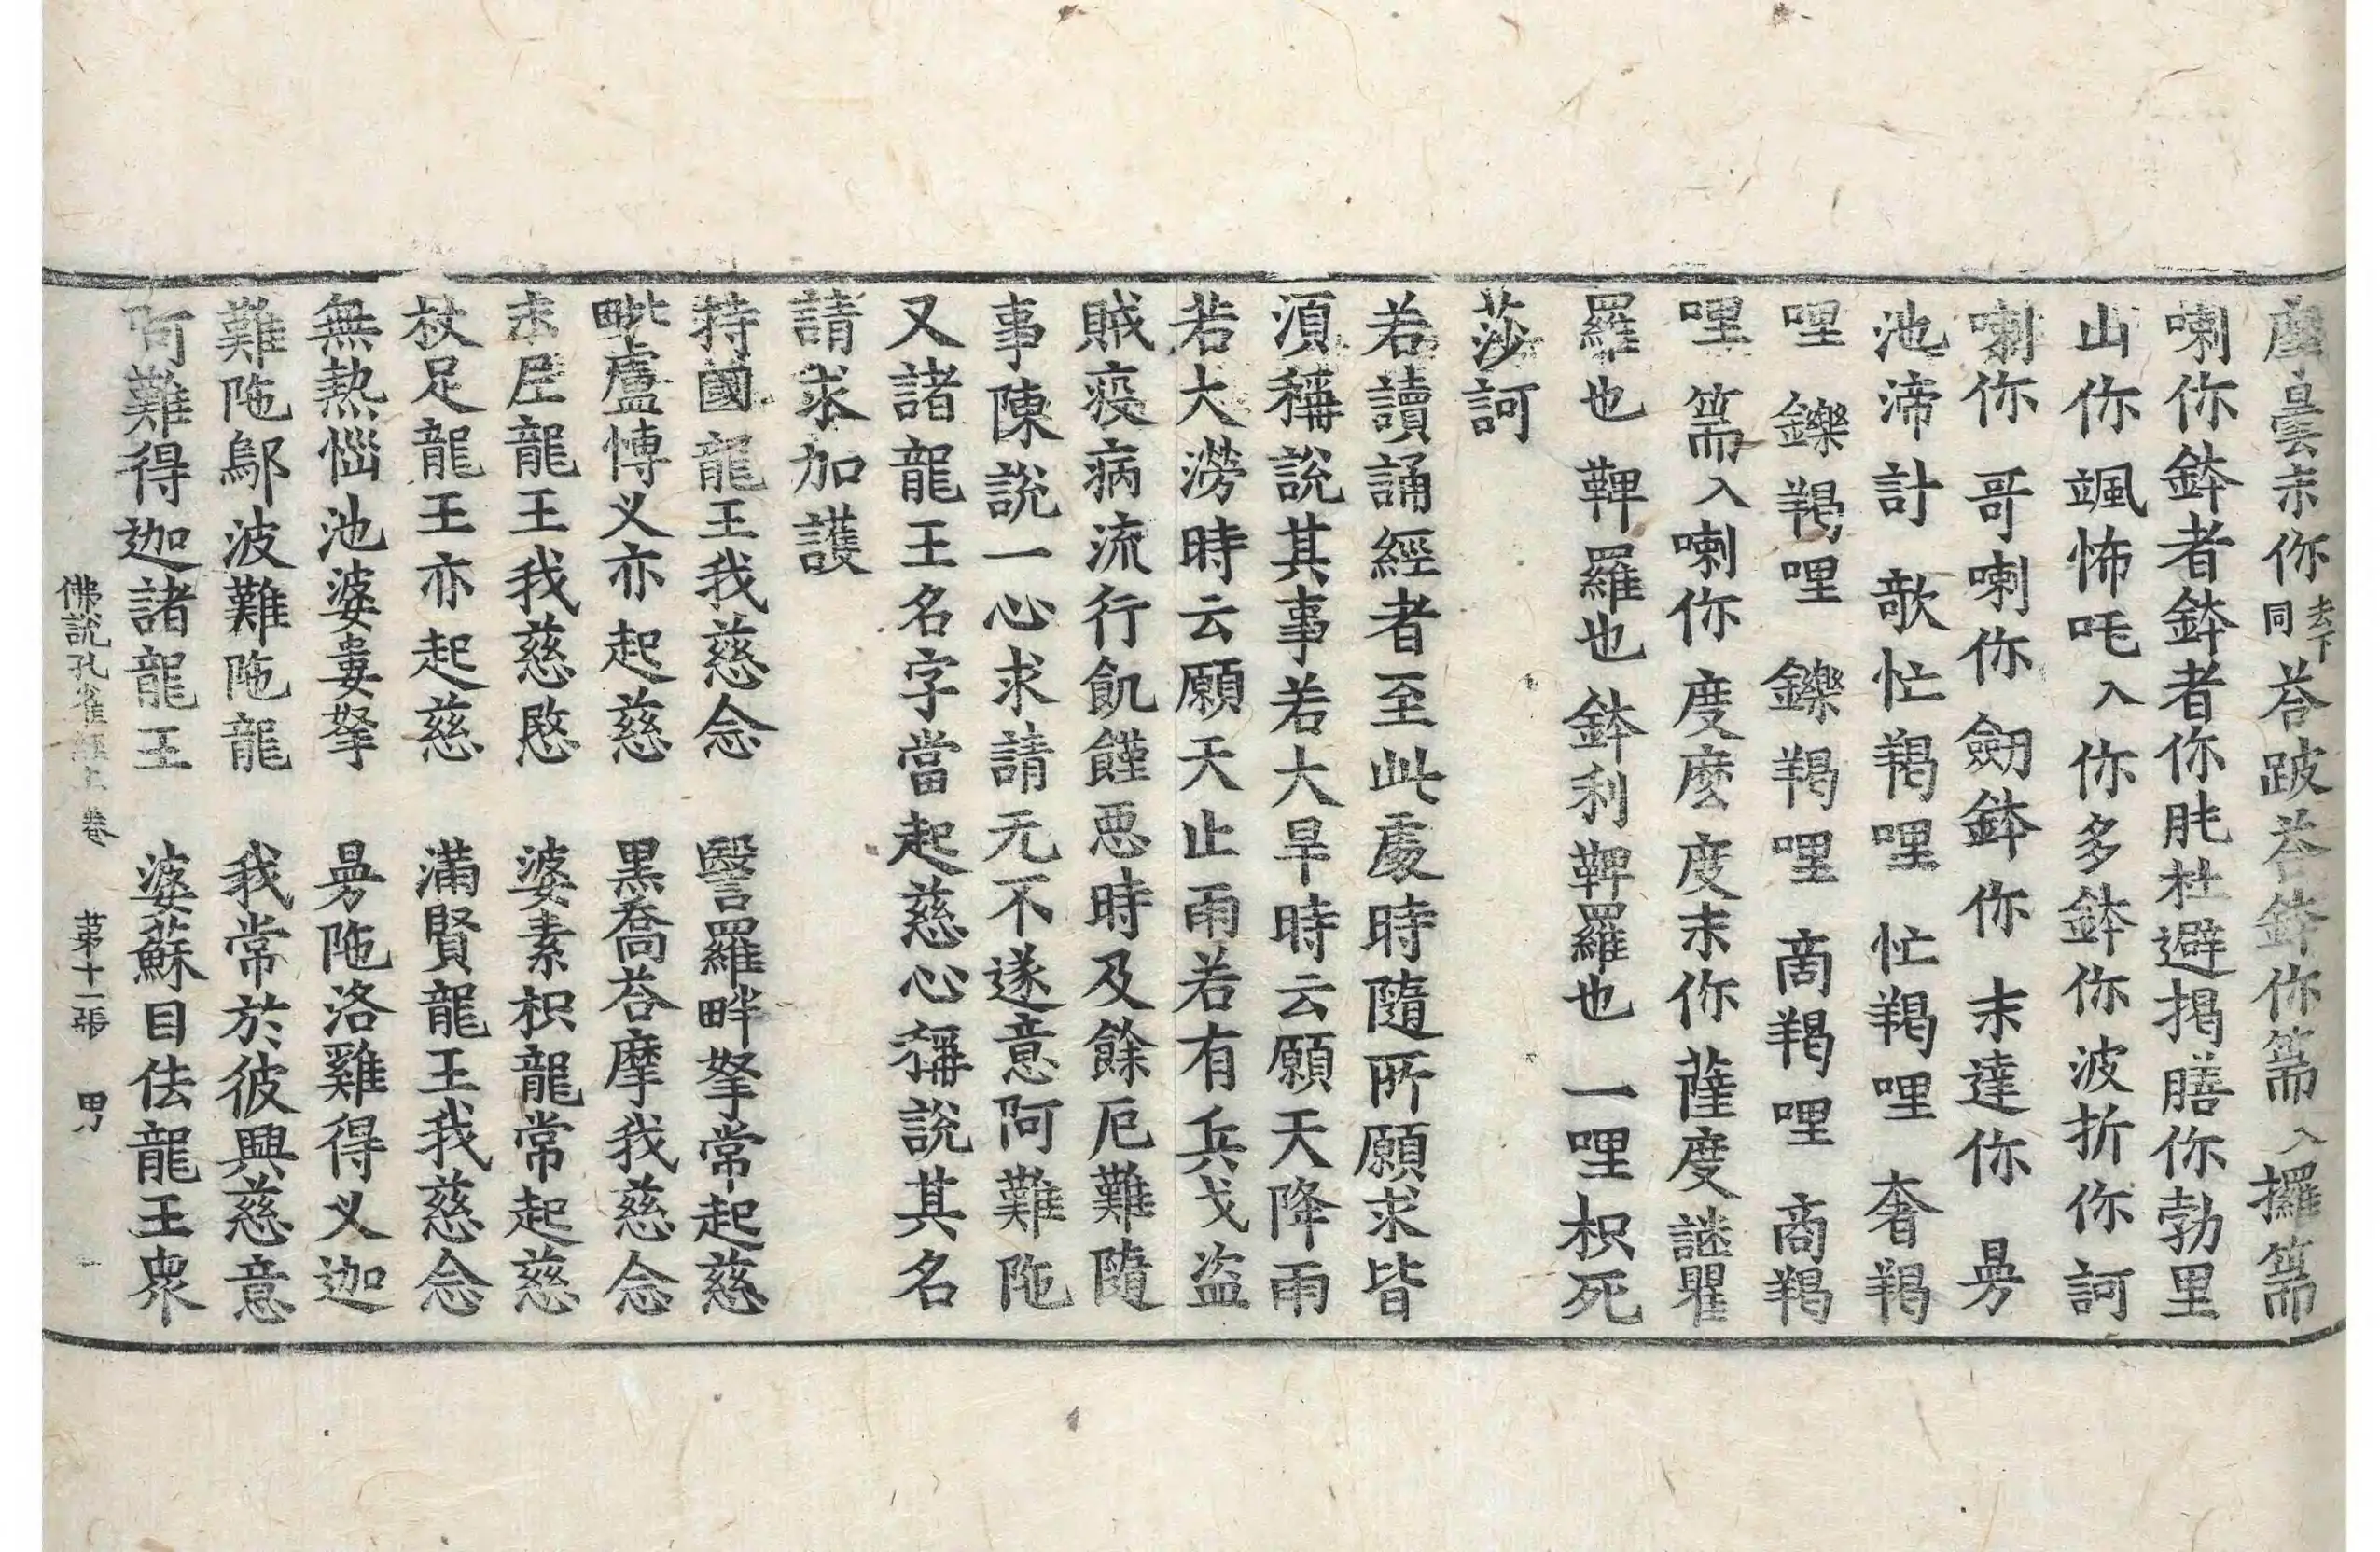 摩曇末你去下同荅跛荅鉢你篅入攞篅
喇你鉢者鉢者你肶杜避揭膳你勃里
山你颯怖吒入你多鉢你波折你訶
喇你哥喇你劒鉢你末達你曼
池渧計欹忙羯哩忙羯哩奢羯
哩鑠羯哩鑠羯哩啇羯哩啇羯
哩篅入喇你度麼度末你薩度謎瞿
羅也鞞羅也鉢利鞞羅也一哩枳死
莎訶
若讀誦經者至此處時隨所願求皆
湏稱說其事若大旱時云願天降雨
若大澇時云願天止雨若有兵戈盗
賊疫病流行飢饉惡時及餘厄難隨
事陳說一心求請无不遂意阿難陁
又諸龍王名字當起慈心稱說其名
請求加護
持國龍王我慈念 醫羅畔拏常起慈
毗盧愽义亦起慈 黒喬荅摩我慈念
末𡱝龍王我慈愍 婆素枳龍常起慈
杖足龍王亦起慈 滿賢龍王我慈念
無熱惱池婆婁拏 曼陁洛雞得义迦
難陁鄔波難陁龍 我常於彼興慈意
阿難得迦諸龍王 婆蘇目佉龍王衆
佛說孔雀經上卷 苐十一張 男